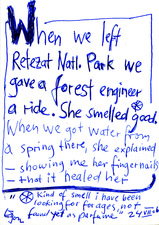 When we left
Retezat Natl. Park we
gave a forest engineer
a ride. She smelled good.
When we got water from
a spring there, she explained
— showing me her fingernails
— that it healed her
* Kind of smell i have been
looking for for ages, not
found yet as perfume"